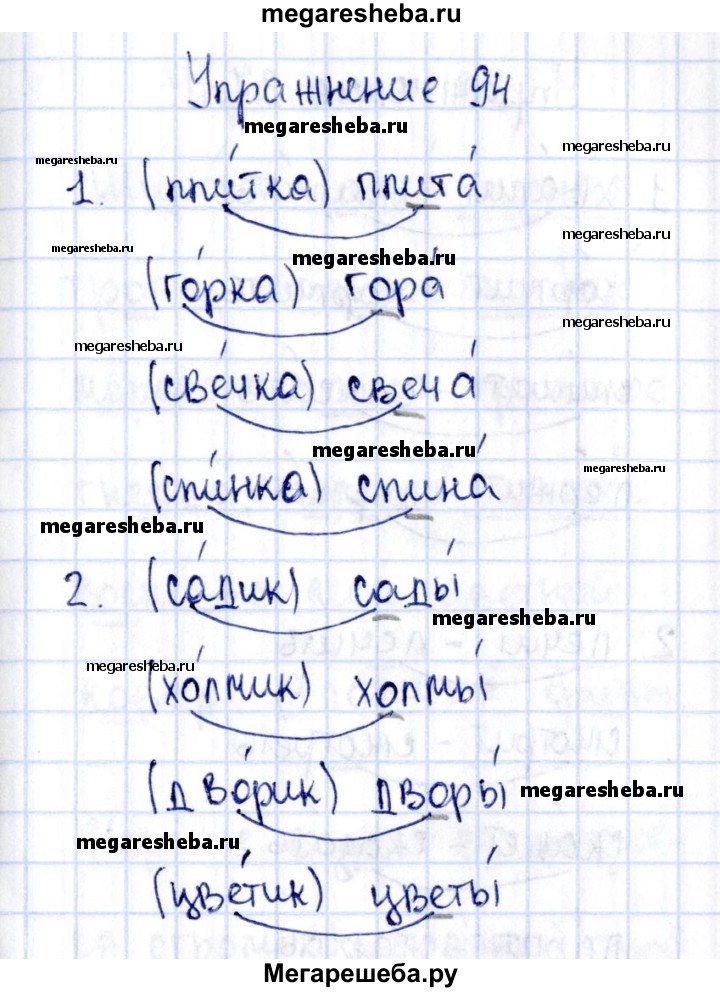 megaresheba.ru
Упражнение 94
megaresheba.ru
megaresheba.ru
megaresheba.ru
1. (пли́тка) плита́
megaresheba.ru
megaresheba.ru
megaresheba.ru
(го́рка) гора́
megaresheba.ru
megaresheba.ru
(све́чка) свеча́
megaresheba.ru
megaresheba.ru
(спи́нка) спина́
megaresheba.ru
2. (са́дик) сады́
megaresheba.ru
megaresheba.ru
(хо́лмик) холмы́
(дво́рик) дворы́
megaresheba.ru
megaresheba.ru
(цве́тик) цветы́
Мегарешеба.ру